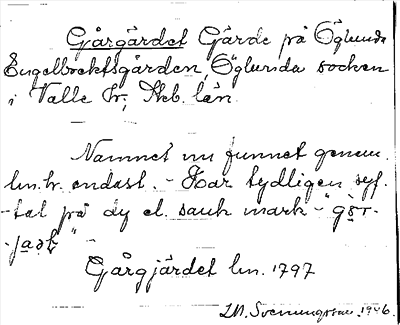 Gårgärdet Gärde på Öglunda
Engelbrektsgården, Öglunda socken
i Valle hr, Skb. län.
Namnet nu funnet genom
lm. hr. endast. - Har tydligen syf-
-tat på dy el. sank mark - "gör-
Gårgjärdet lm. 1797
1946.